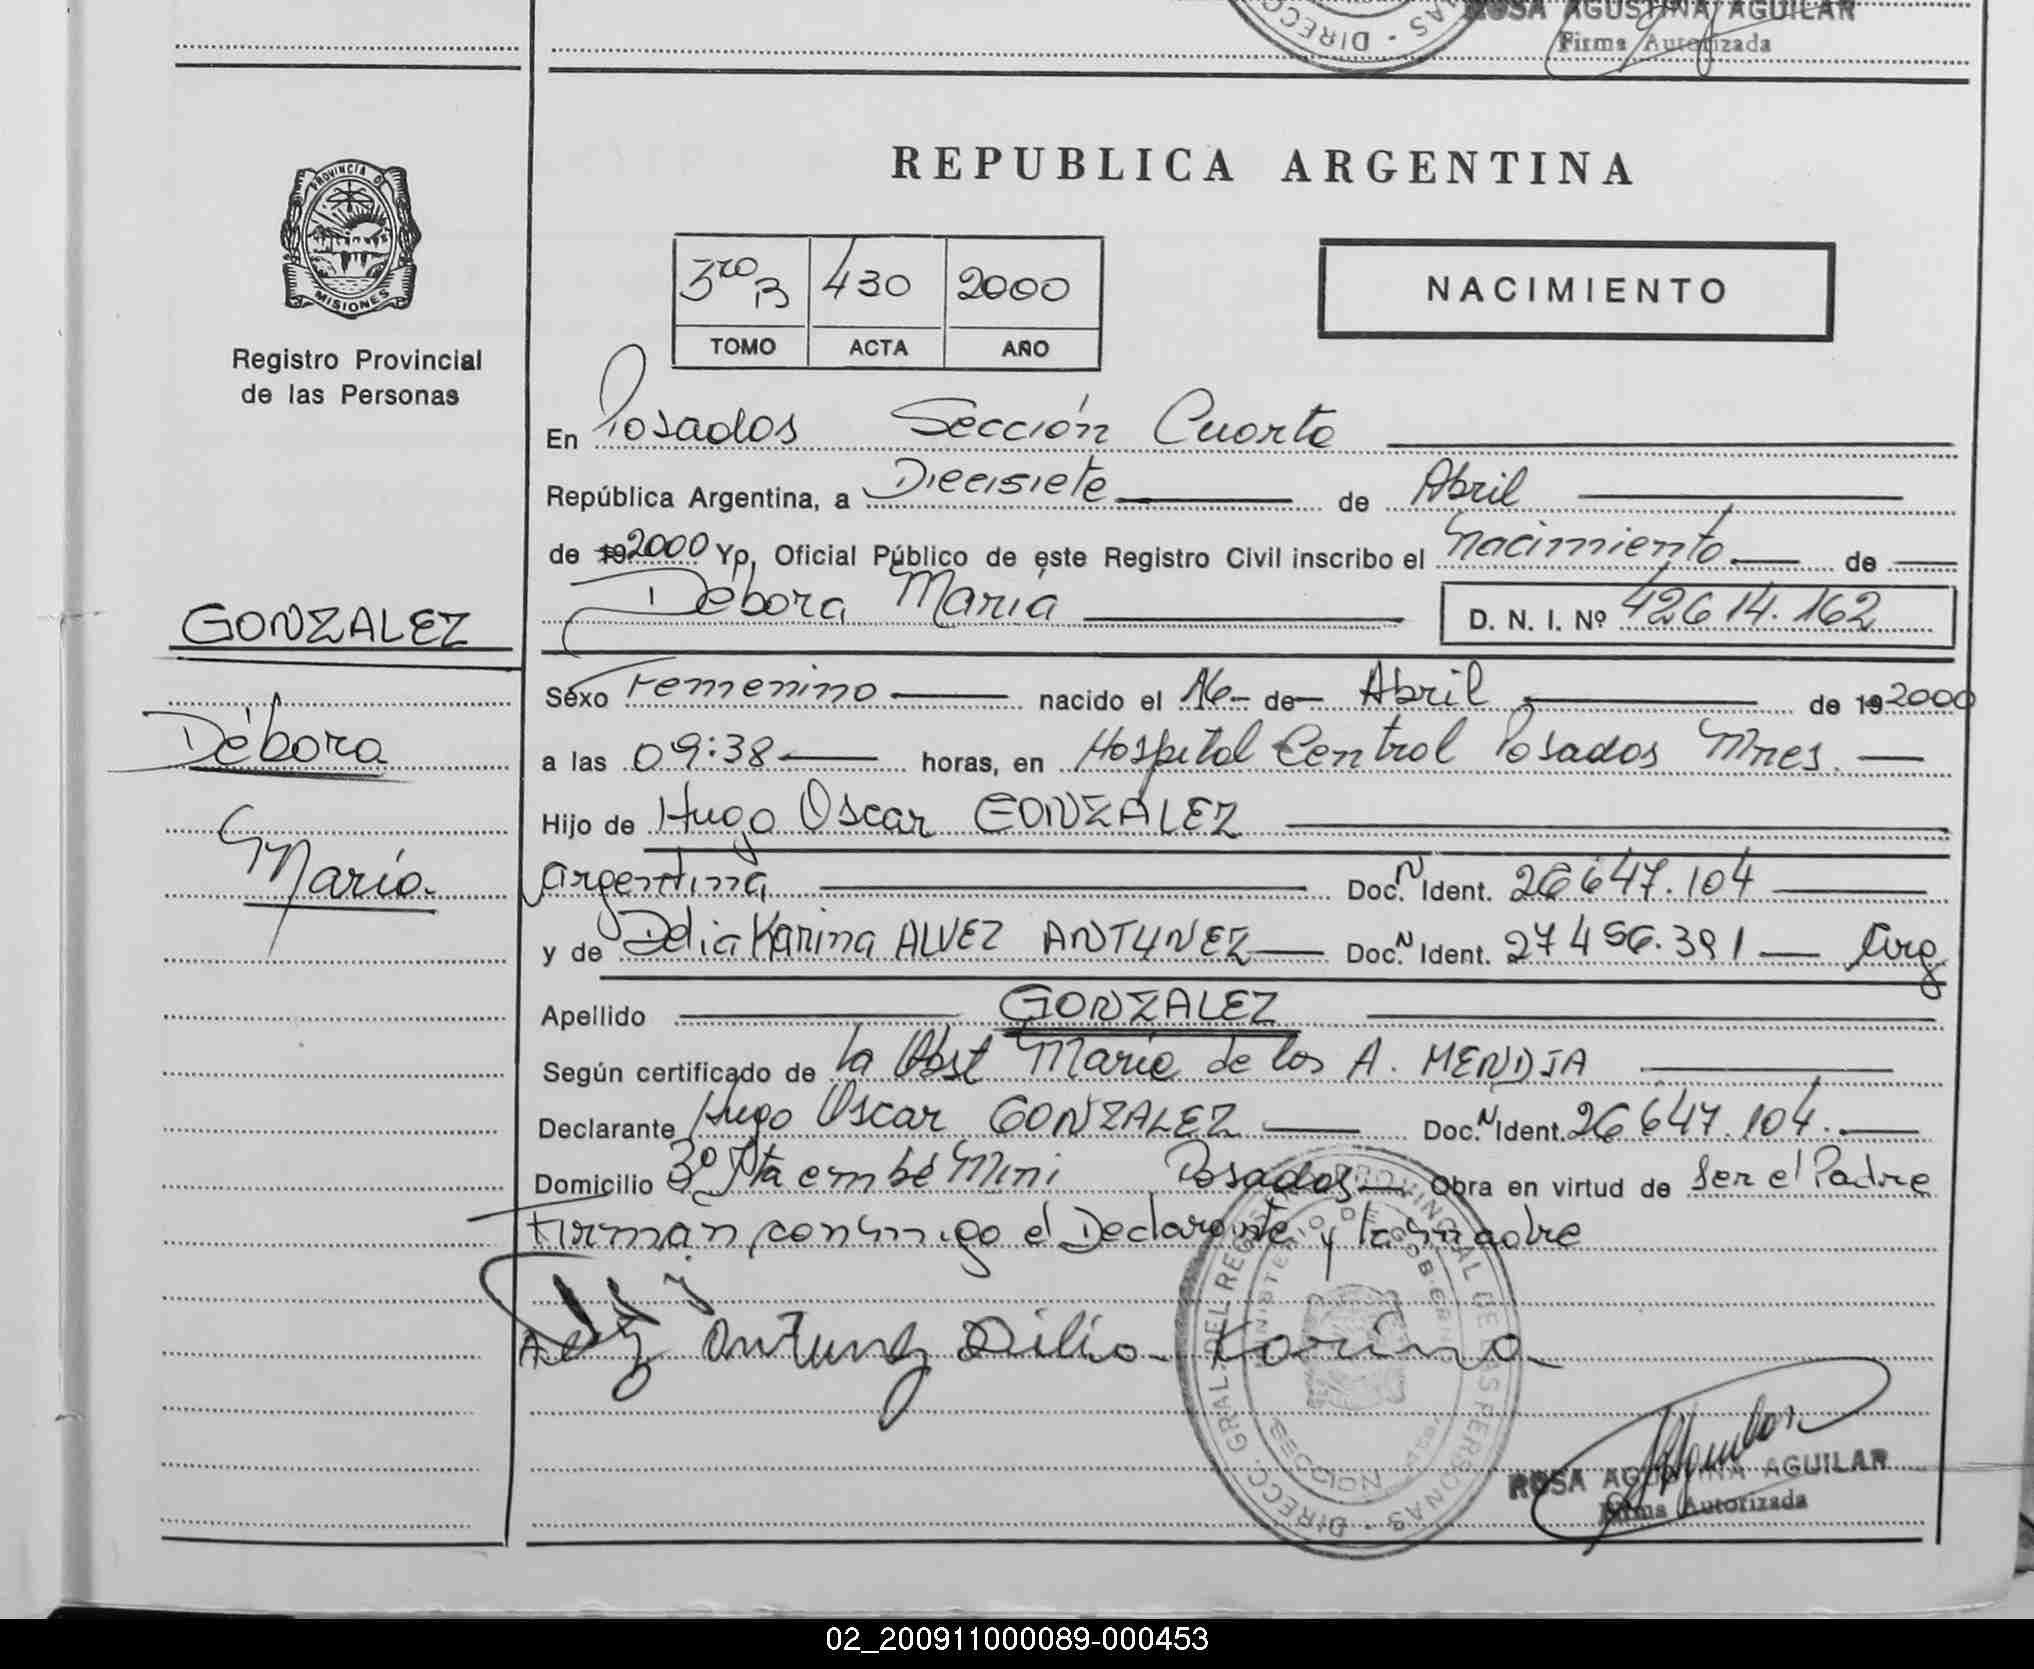 ROSA AGUSTINA AGUILAR
Firma Autorizada
PROVINCIA DE
MISIONES
Registro Provincial
de las Personas
REPUBLICA ARGENTINA
3ro B 430 2000
TOMO ACTA AÑO
NACIMIENTO
En Posadas Sección Cuarta
República Argentina, a Diecisiete de Abril
de 19 2000 Yo, Oficial Público de este Registro Civil inscribo el Nacimiento de
Débora María D. N. I. Nº 42614.162
GONZALEZ
Débora
María.
Sexo Femenino nacido el 16 de Abril de 19 2000
a las 09:38 horas, en Hospital Central Posadas Mnes.
Hijo de Hugo Oscar GONZALEZ
argentina Doc. N Ident. 26647.104
y de Delia Karina ALVEZ ANTUNEZ Doc. N Ident. 27456.391 Arg
Apellido GONZALEZ
Según certificado de la Obst Maria de los A. MENDIA
Declarante Hugo Oscar GONZALEZ Doc. N Ident. 26647.104.
Domicilio Itaembé Mini Posadas Obra en virtud de Ser el Padre
Firman conmigo el Declarante y la madre
Antunez Dilia Karina
DIRECC. GRAL. DEL REGISTRO PROVINCIAL DE LAS PERSONAS
MINISTERIO DE GOBIERNO
ROSA AGUSTINA AGUILAR
Firma Autorizada
02_200911000089-000453